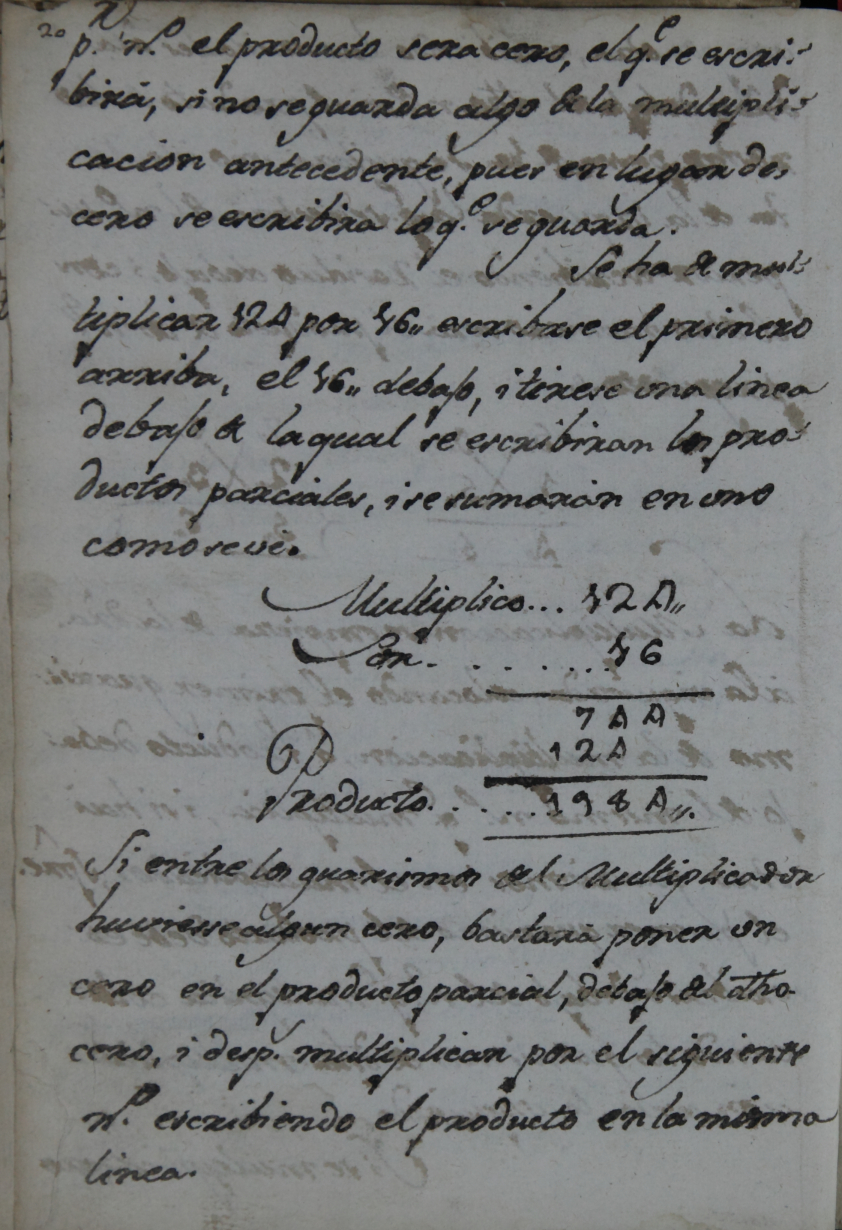 20 p.r n.º el producto sera cero, el q.e se escri-
birá, si no se guarda algo de la multipli-
cacion antecedente, pues en lugar de
cero se escribira lo q.e se guarda.
Se ha de mul-
tiplicar 124 por 16,, escribase el primero
arriba, el 16,, debajo, i tirese una linea
debajo de la qual se escribiran los pro-
ductos parciales, i se sumarán en uno
como se ve.
Multiplico... 124,,
Por. . . . . . . 16
744
124
Producto. . . . . . 1984,,.
Si entre los guarismos del Multiplicador
huviesse algun cero, bastará poner un
cero en el producto parcial, debajo del dho
cero, i desp.s multiplicar por el siguiente
n.º escribiendo el producto en la misma
linea.